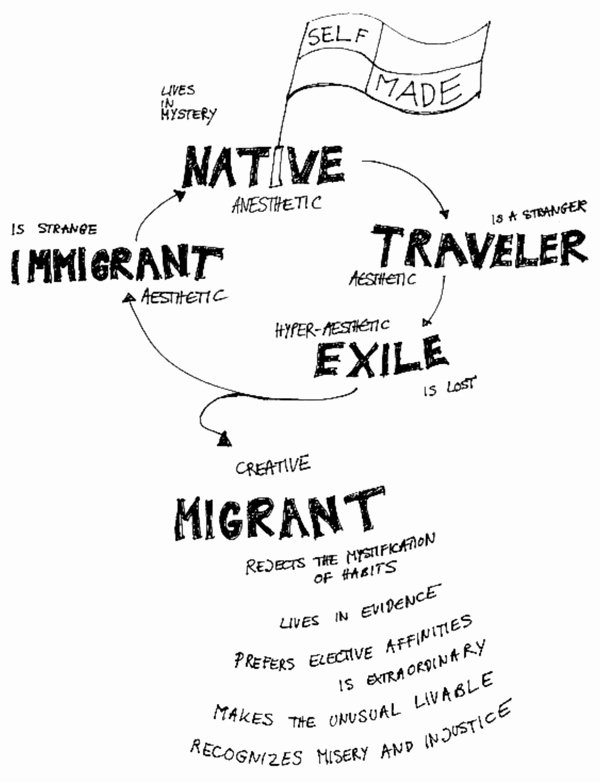 SELF
MADE
LIVES
IN
MYSTERY
NATIVE
ANESTHETIC
IS STRANGE
IMMIGRANT
AESTHETIC
IS A STRANGER
TRAVELER
AESTHETIC
HYPER-AESTHETIC
EXILE
IS LOST
CREATIVE
MIGRANT
REJECTS THE MYSTIFICATION
OF HABITS
LIVES IN EVIDENCE
PREFERS ELECTIVE AFFINITIES
IS EXTRAORDINARY
MAKES THE UNUSUAL LIVABLE
RECOGNIZES MISERY AND INJUSTICE